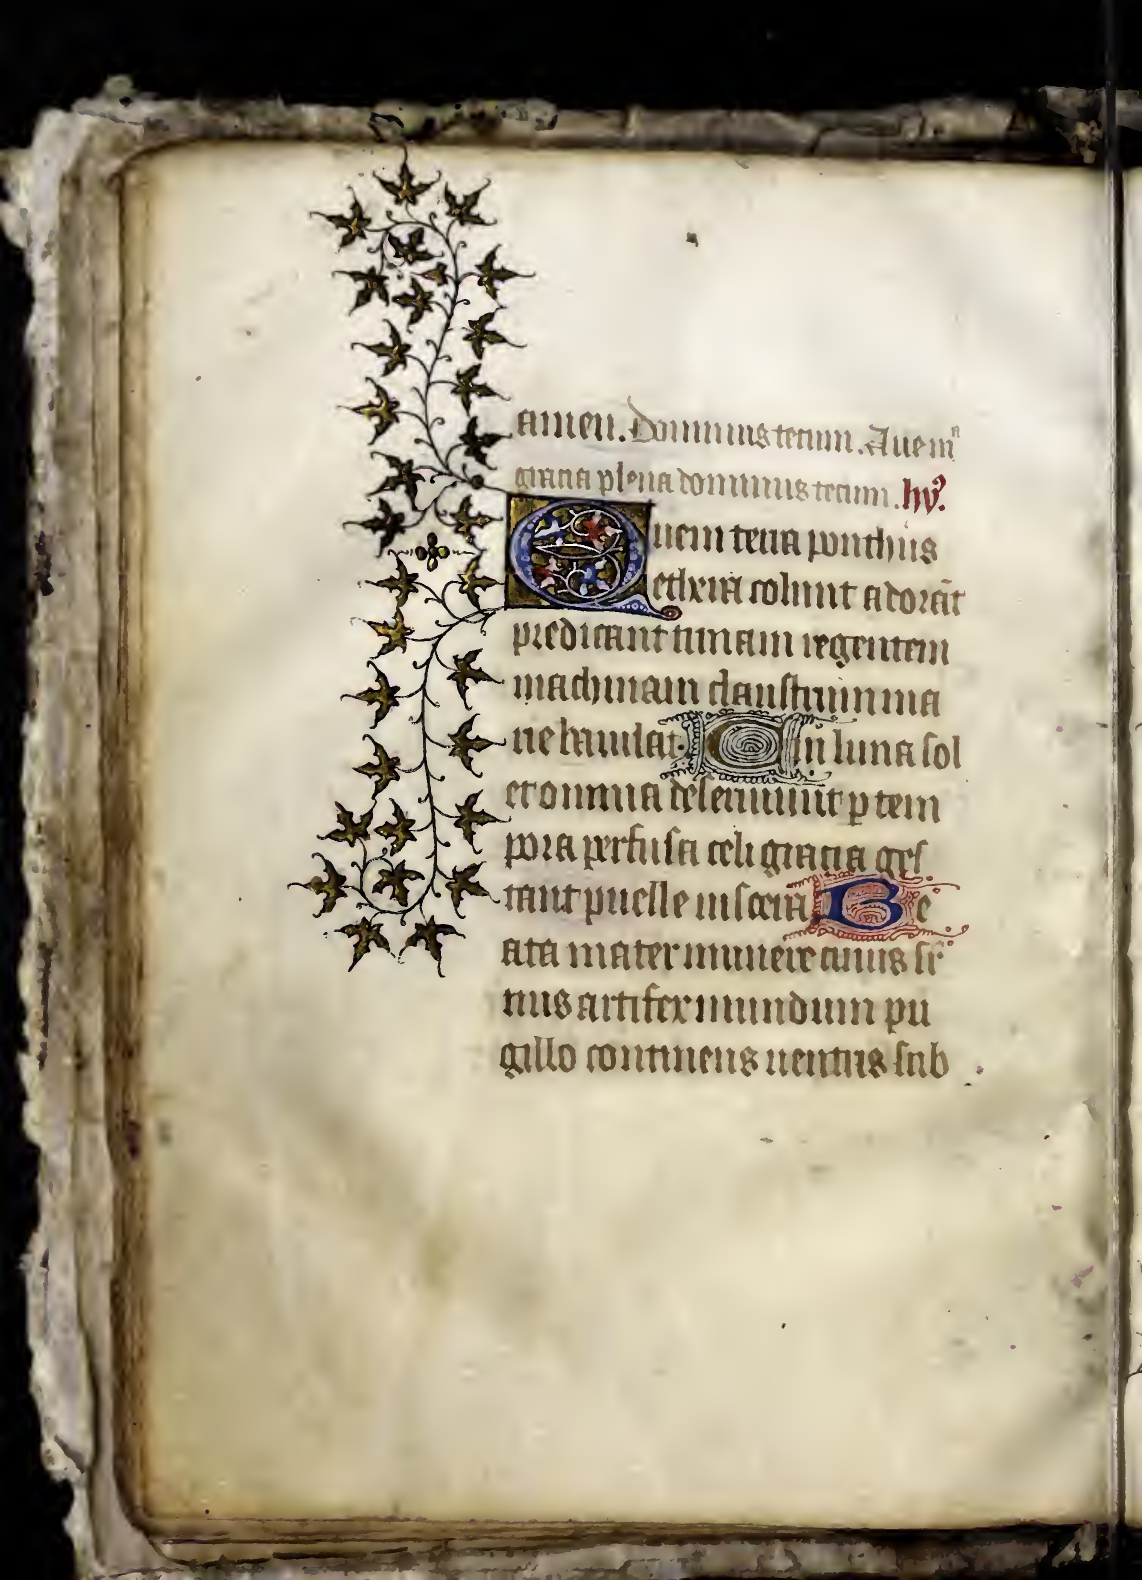 amen. Dominus tecum. Aue mͣ
gracia plena dominus tecum. hẏ⁹.
Quem terra ponthus
ethera colunt adorāt
predicant trinam regentem
machinam claustrum ma
rie baiulat. Cui luna sol
et omnia deseruiunt p̲ tem
pora perfusa celi gracia ges
tant puelle uiscera Be
ata mater munere cuius su
nus artifex mundum pu
gillo continens uentris sub